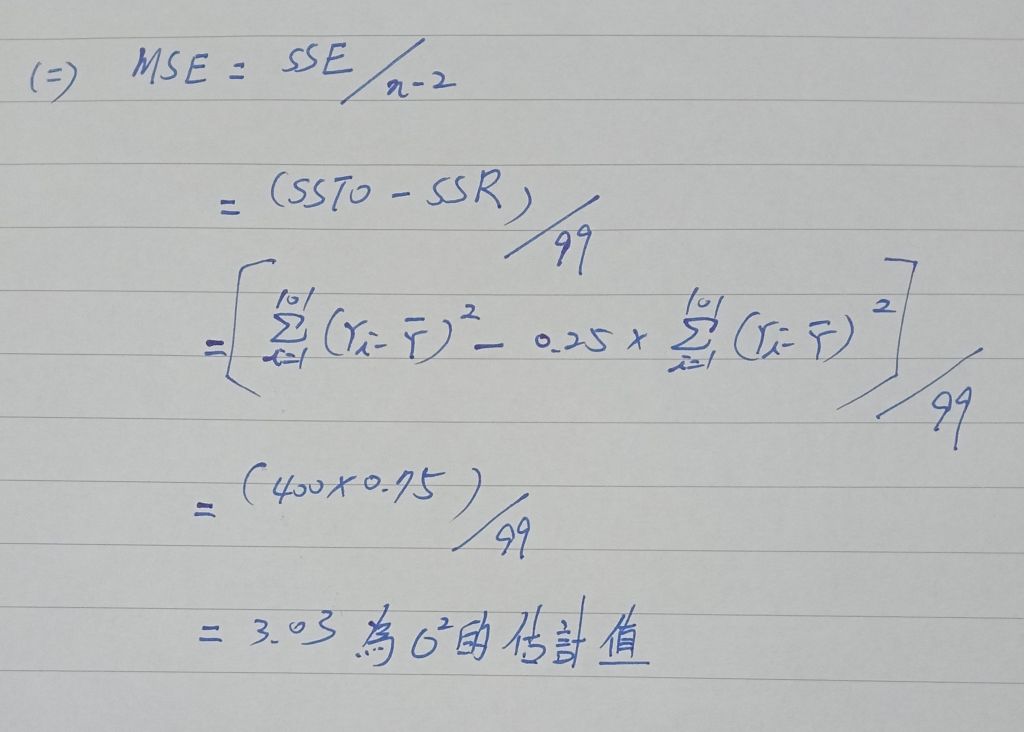 (二) MSE = SSE/n-2
= (SSTO - SSR)/99
= [∑_{i=1}^{101} (Yi - Ȳ)² - 0.25 × ∑_{i=1}^{101} (Yi - Ȳ)²]/99
= (400 × 0.75)/99
= 3.03 為 σ² 的估計值